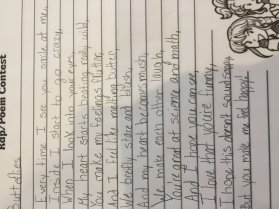 Rap/Poem Contest
Butterflies
Every time I see you smile at me,
Inside I start to go crazy,
When I look into your eyes,
My heart starts beating really wild,
You make my feelings flutter
And I feel like melting butter,
We pretty stare and blush,
And my heart becomes mush,
We make each other laugh,
You're great at science and math,
And I hope you can see
I love that you're funny,
I hope this doesn't sound sappy,
But you make me feel happy.